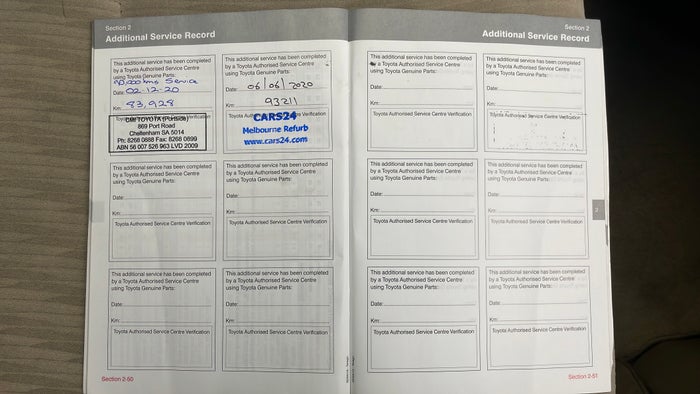 Section 2
Additional Service Record
This additional service has been completed
by a Toyota Authorised Service Centre
using Toyota Genuine Parts:
90,000 kms Service
Date: 02-12-20
Km: 83,928
Toyota Authorised Service Centre Verification
CMI TOYOTA (Portside)
869 Port Road
Cheltenham SA 5014
Ph: 8268 0888 Fax: 8268 0899
ABN 56 007 526 963 LVD 2009
This additional service has been completed
by a Toyota Authorised Service Centre
using Toyota Genuine Parts:
Date: 06/06/2020
Km: 93211
Toyota Authorised Service Centre Verification
CARS24
Melbourne Refurb
www.cars24.com
This additional service has been completed
by a Toyota Authorised Service Centre
using Toyota Genuine Parts:
Date:
Km:
Toyota Authorised Service Centre Verification
This additional service has been completed
by a Toyota Authorised Service Centre
using Toyota Genuine Parts:
Date:
Km:
Toyota Authorised Service Centre Verification
This additional service has been completed
by a Toyota Authorised Service Centre
using Toyota Genuine Parts:
Date:
Km:
Toyota Authorised Service Centre Verification
This additional service has been completed
by a Toyota Authorised Service Centre
using Toyota Genuine Parts:
Date:
Km:
Toyota Authorised Service Centre Verification
Section 2-50
Section 2
Additional Service Record
This additional service has been completed
by a Toyota Authorised Service Centre
using Toyota Genuine Parts:
Date:
Km:
Toyota Authorised Service Centre Verification
This additional service has been completed
by a Toyota Authorised Service Centre
using Toyota Genuine Parts:
Date:
Km:
Toyota Authorised Service Centre Verification
This additional service has been completed
by a Toyota Authorised Service Centre
using Toyota Genuine Parts:
Date:
Km:
Toyota Authorised Service Centre Verification
This additional service has been completed
by a Toyota Authorised Service Centre
using Toyota Genuine Parts:
Date:
Km:
Toyota Authorised Service Centre Verification
2
This additional service has been completed
by a Toyota Authorised Service Centre
using Toyota Genuine Parts:
Date:
Km:
Toyota Authorised Service Centre Verification
This additional service has been completed
by a Toyota Authorised Service Centre
using Toyota Genuine Parts:
Date:
Km:
Toyota Authorised Service Centre Verification
Section 2-51